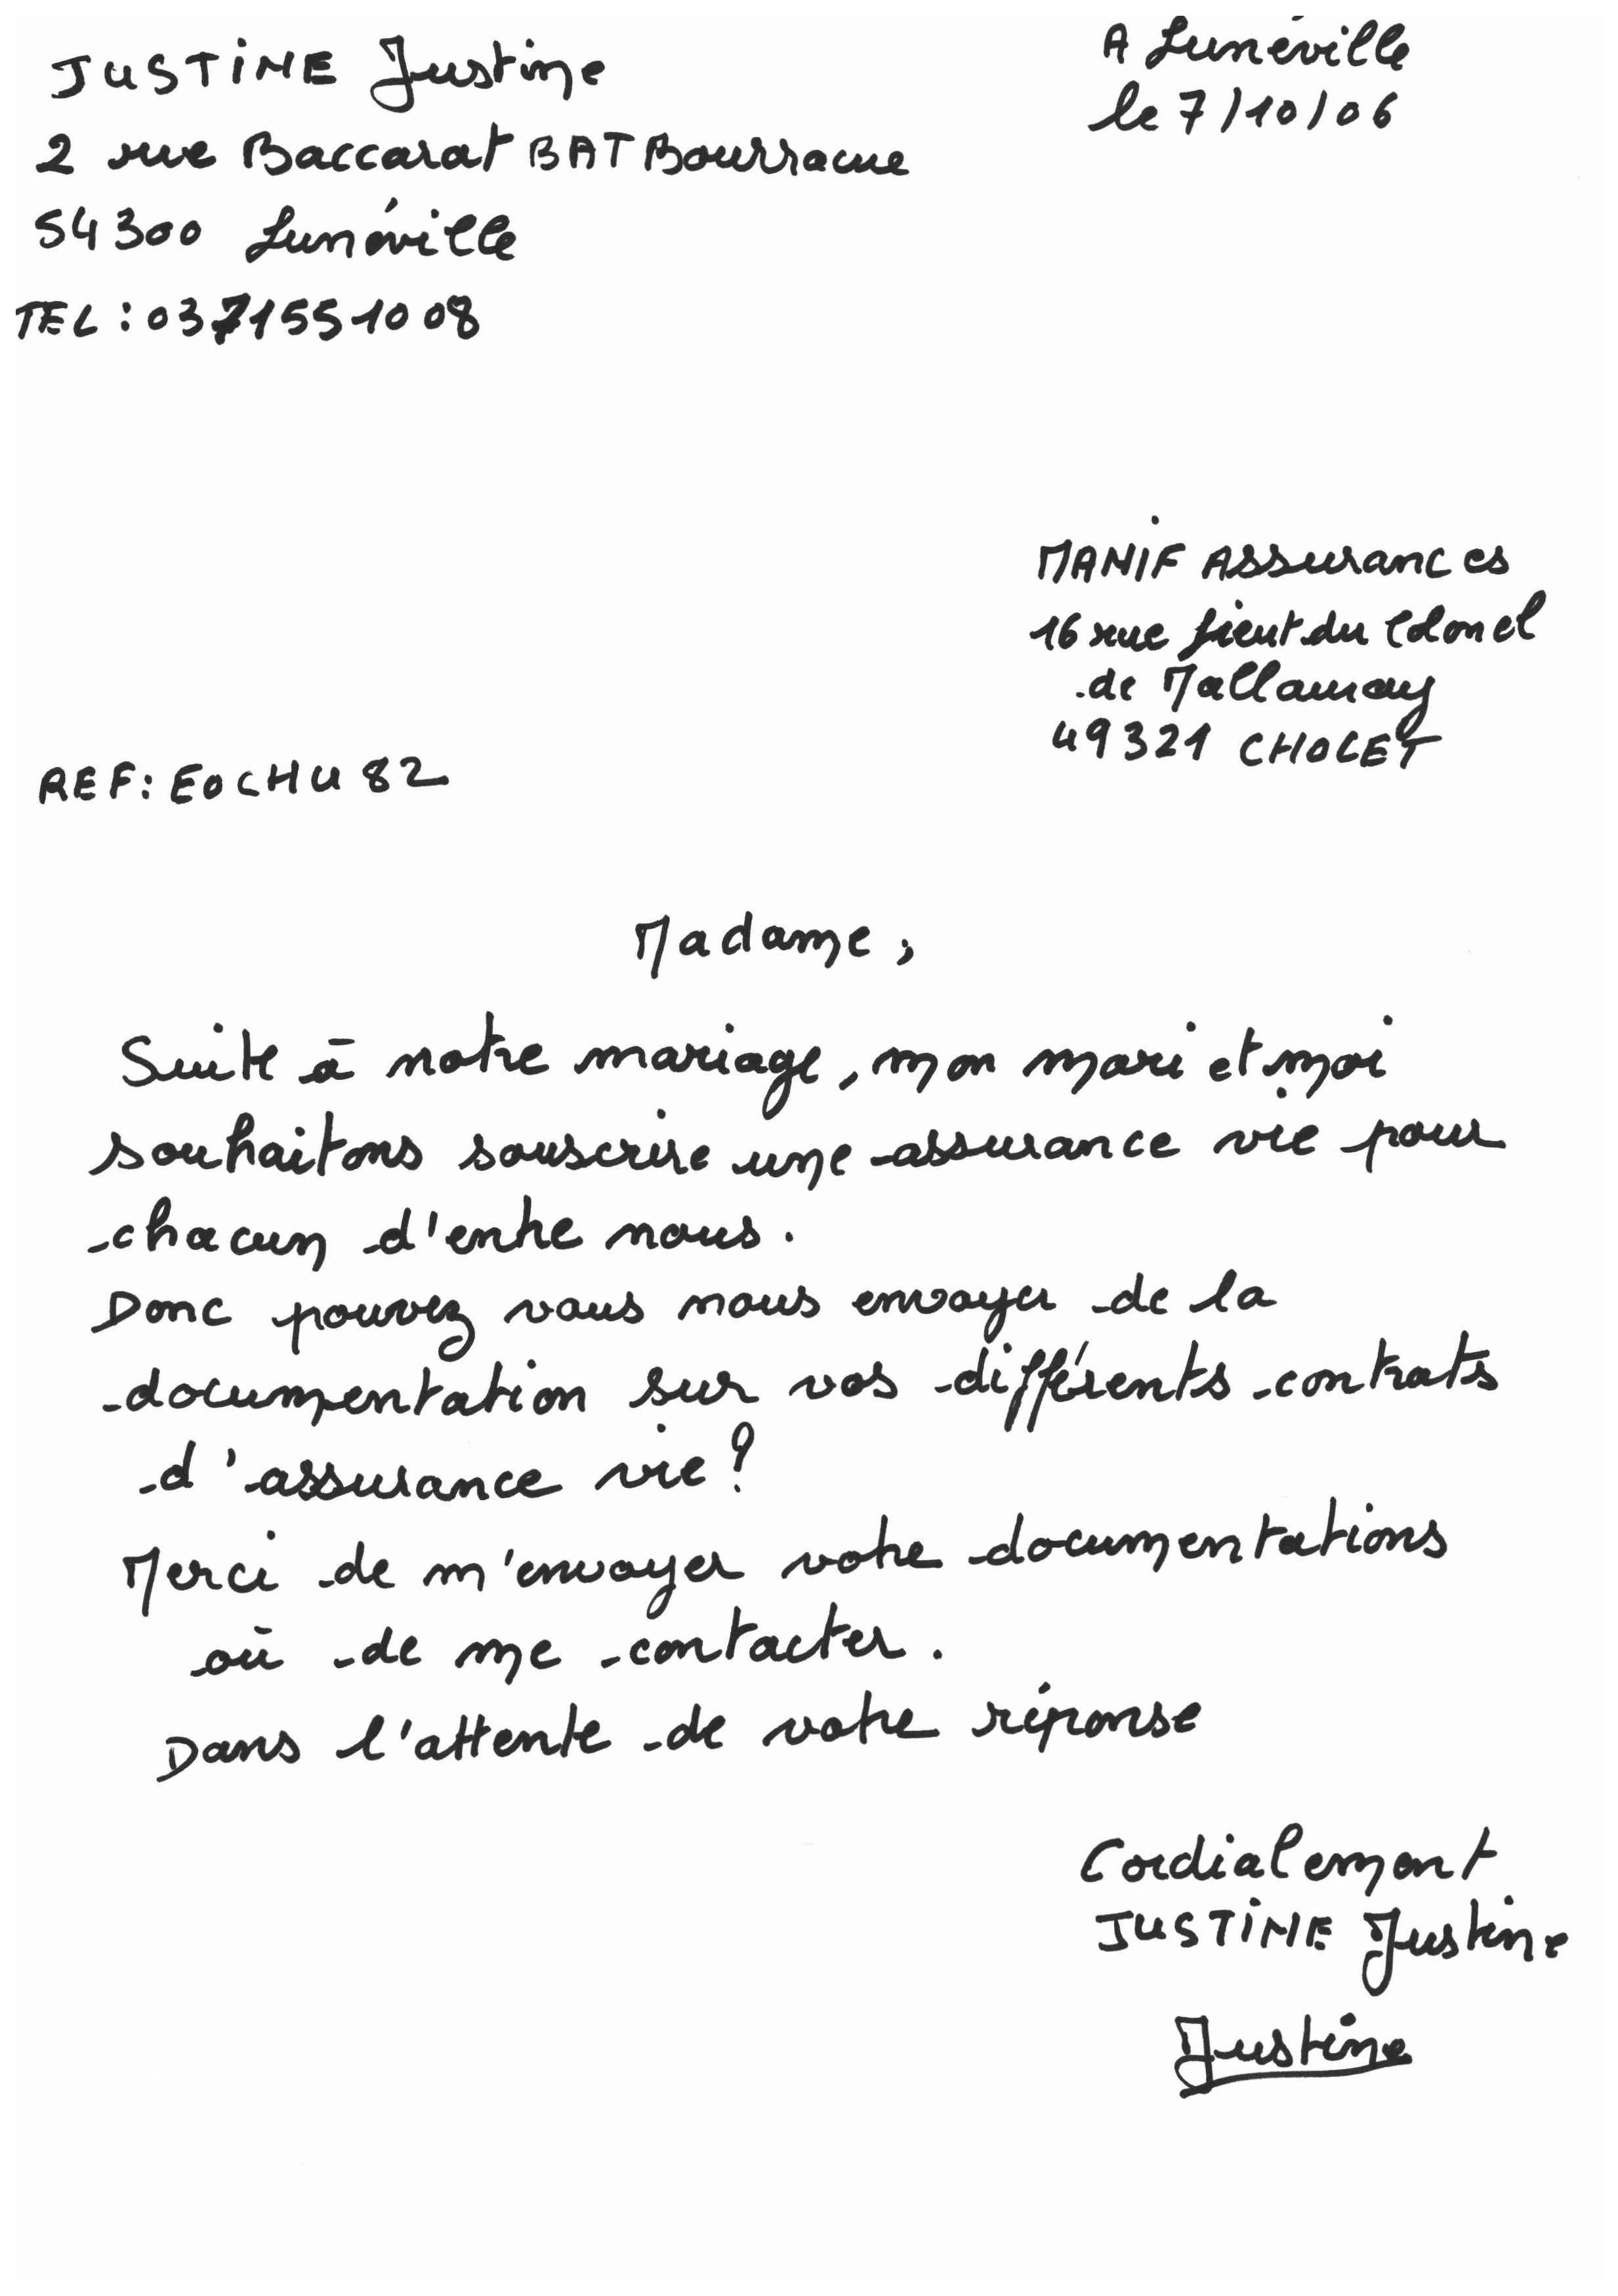 JUSTINE Justine
2 rue Baccarat BAT Bourracue
54300 Lunéville
TEL : 0371551008
A Lunéville
le 7/10/06
MANIF Assurances
16 rue lieut du Colonel
de
49321 CHOLET
REF: EOCHU82
Madame,
Suite à notre mariage, mon mari et moi
souhaitons souscrire une assurance vie pour
chacun d'entre nous.
Donc pouvez vous nous envoyer de la
documentation sur vos différents contrats
d'assurance vie ?
Merci de m'envoyer votre documentations
où de me contacter.
Dans l'attente de votre réponse
Cordialement
JUSTINE Justine
Justine